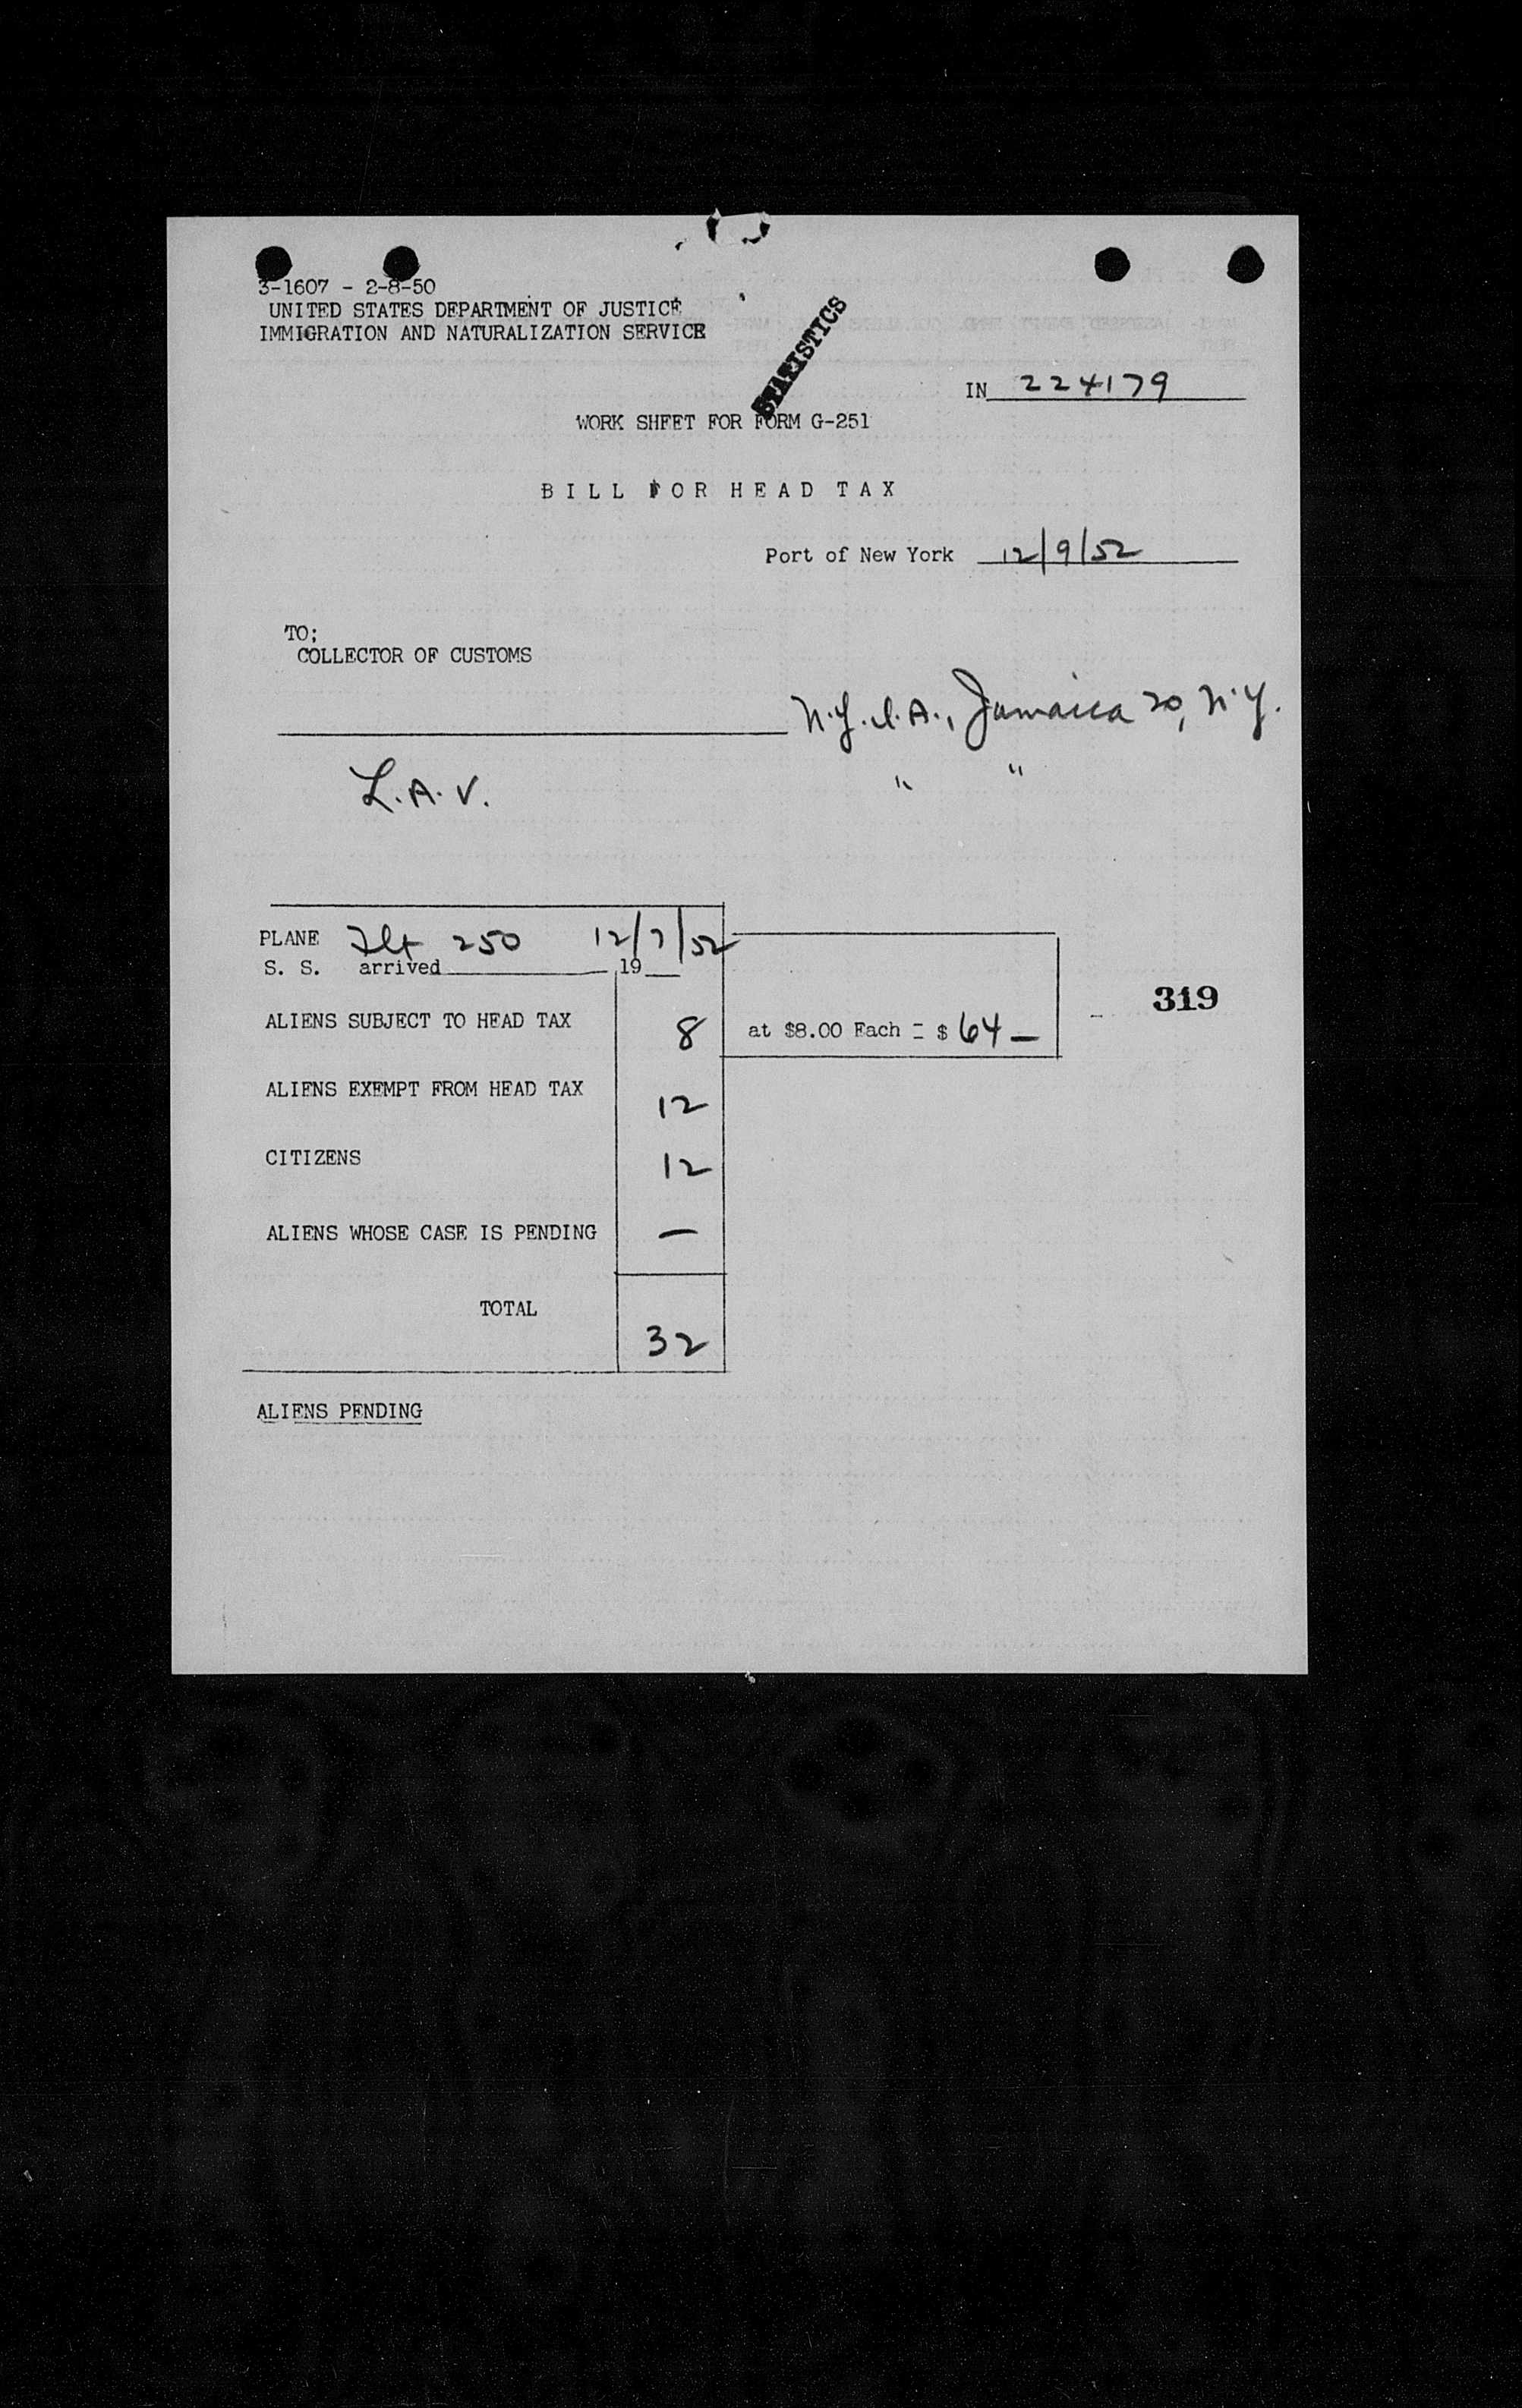 3-1607 - 2-8-50
UNITED STATES DEPARTMENT OF JUSTICE
IMMIGRATION AND NATURALIZATION SERVICE
STATISTICS
IN 224179
WORK SHEET FOR FORM G-251
BILL FOR HEAD TAX
Port of New York 12/9/52
TO;
COLLECTOR OF CUSTOMS
N.Y.I.A., Jamaica 20, N.Y.
L.A.V. " "
PLANE Flt 250 12/7/52
S. S. arrived , 19
319
ALIENS SUBJECT TO HEAD TAX 8 at $8.00 Each = $ 64 —
ALIENS EXEMPT FROM HEAD TAX 12
CITIZENS 12
ALIENS WHOSE CASE IS PENDING —
TOTAL 32
ALIENS PENDING